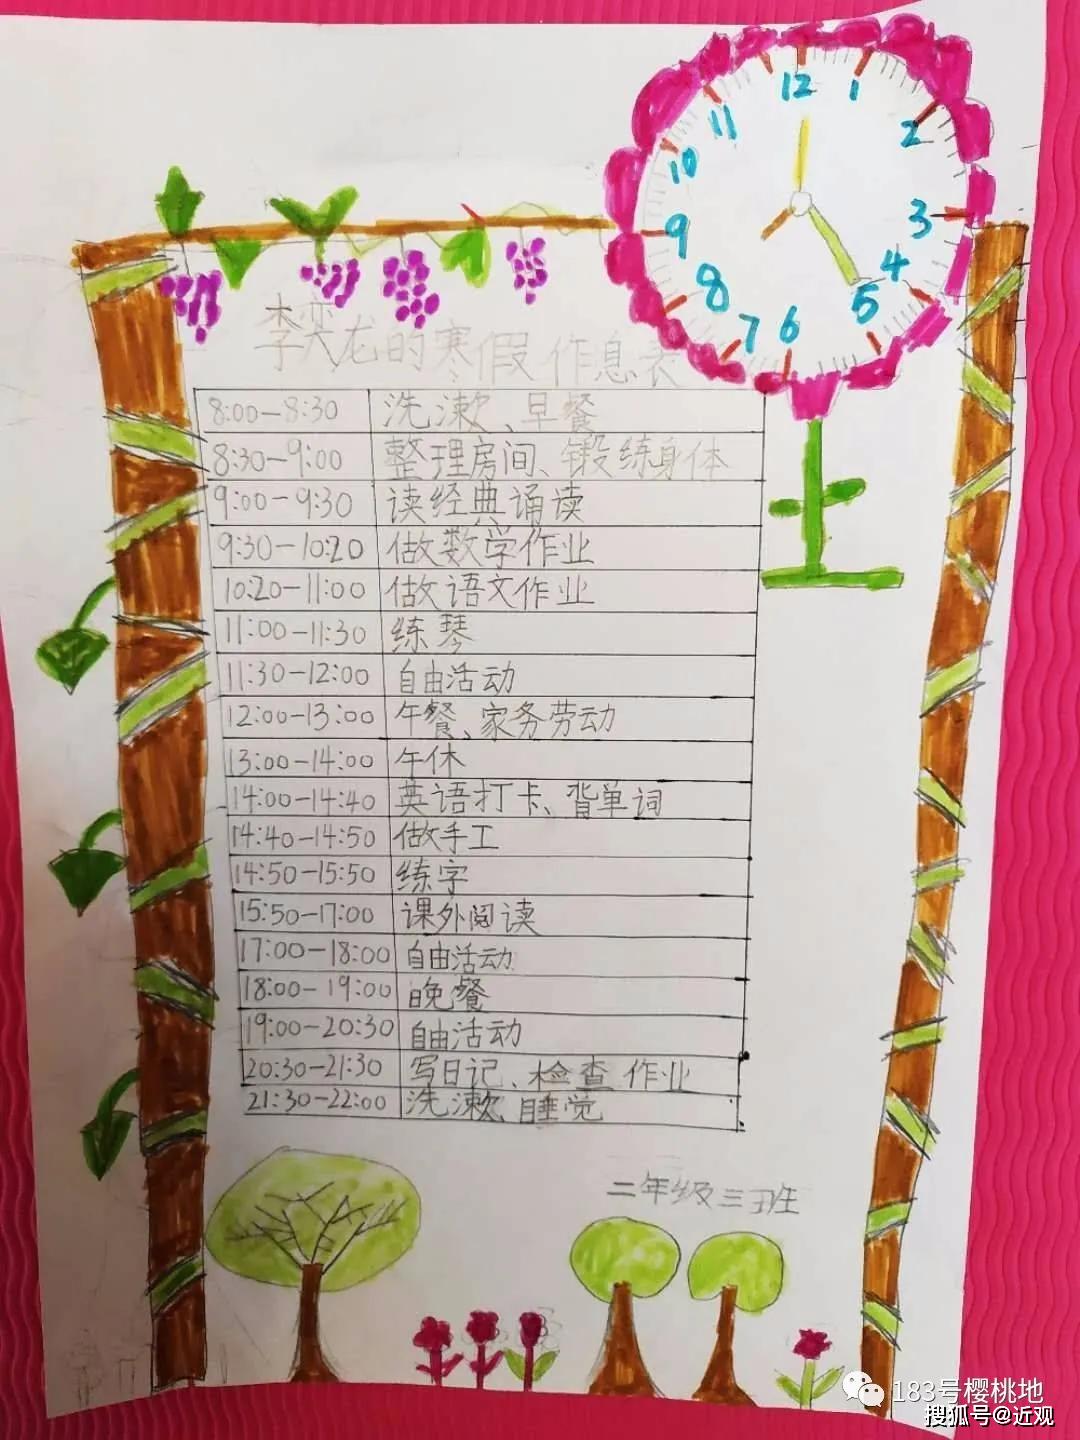 12
1
11
2
10
3
9
4
8
5
7
6
李奕龙的寒假作息表
8:00—8:30 洗漱、早餐
8:30—9:00 整理房间、锻练身体
9:00—9:30 读经典诵读
9:30—10:20 做数学作业
10:20—11:00 做语文作业
11:00—11:30 练琴
11:30—12:00 自由活动
12:00—13:00 午餐、家务劳动
13:00—14:00 午休
14:00—14:40 英语打卡、背单词
14:40—14:50 做手工
14:50—15:50 练字
15:50—17:00 课外阅读
17:00—18:00 自由活动
18:00—19:00 晚餐
19:00—20:30 自由活动
20:30—21:30 写日记、检查作业
21:30—22:00 洗漱、睡觉
二年级三班
183号樱桃地
搜狐号@近观